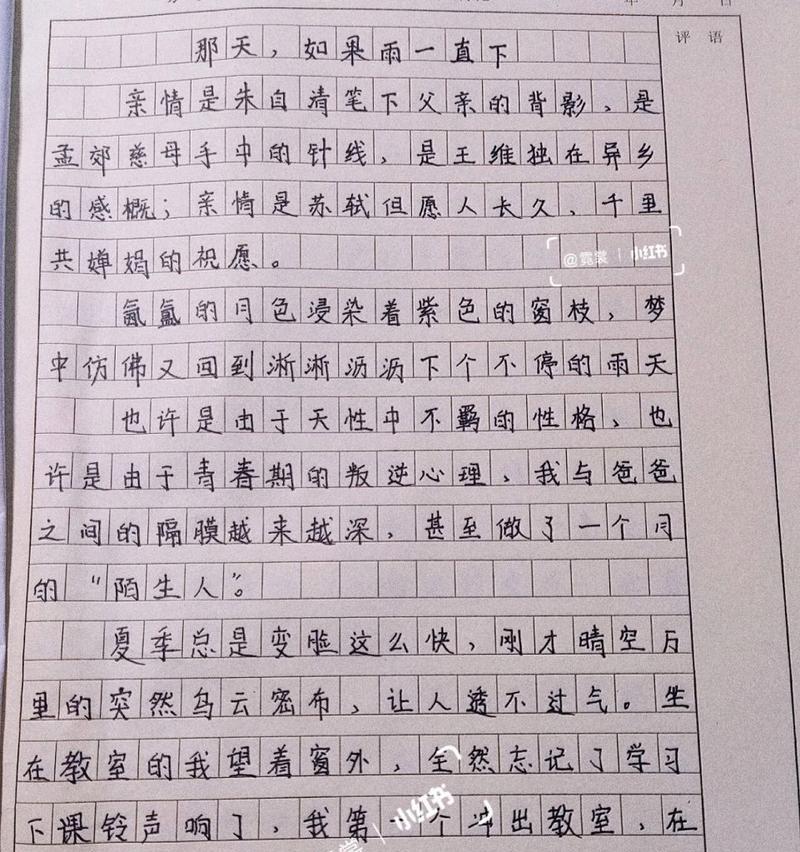 年 月 日
评 语
那天，如果雨一直下
亲情是朱自清笔下父亲的背影、是
孟郊慈母手中的针线，是王维独在异乡
的感概；亲情是苏轼但愿人长久、千里
共婵娟的祝愿。
@霓裳 | 小红书
氤氲的月色浸染着紫色的窗枝，梦
中仿佛又回到淅淅沥沥下个不停的雨天
也许是由于天性中不羁的性格、也
许是由于青春期的叛逆心理、我与爸爸
之间的隔膜越来越深，甚至做了一个月
的“陌生人”。
夏季总是变脸这么快，刚才晴空万
里的突然乌云密布，让人透不过气。坐
在教室的我望着窗外，全然忘记了学习
下课铃声响了，我第一个冲出教室，在
小红书